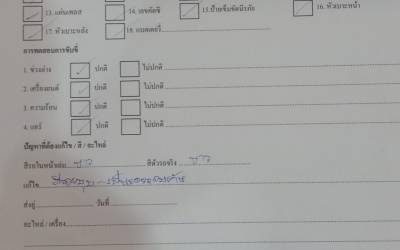 13. แผ่นเพลส 14. เลขตัวถัง 15.ป้ายเข็มขัดนิรภัย 16. หัวเบาะหน้า
17. หัวเบาะหลัง 18. แบตเตอรี่
การทดสอบการขับขี่
1. ช่วงล่าง ปกติ ไม่ปกติ
2. เครื่องยนต์ ปกติ ไม่ปกติ
3. ความร้อน ปกติ ไม่ปกติ
4. แอร์ ปกติ ไม่ปกติ
ปัญหาที่ต้องแก้ไข / สี / อะไหล่
สีรถในหน้าเล่ม ขาว สีตัวรถจริง ขาว
แก้ไข
ส่งอู่ วันที่
อะไหล่ / เครื่อง